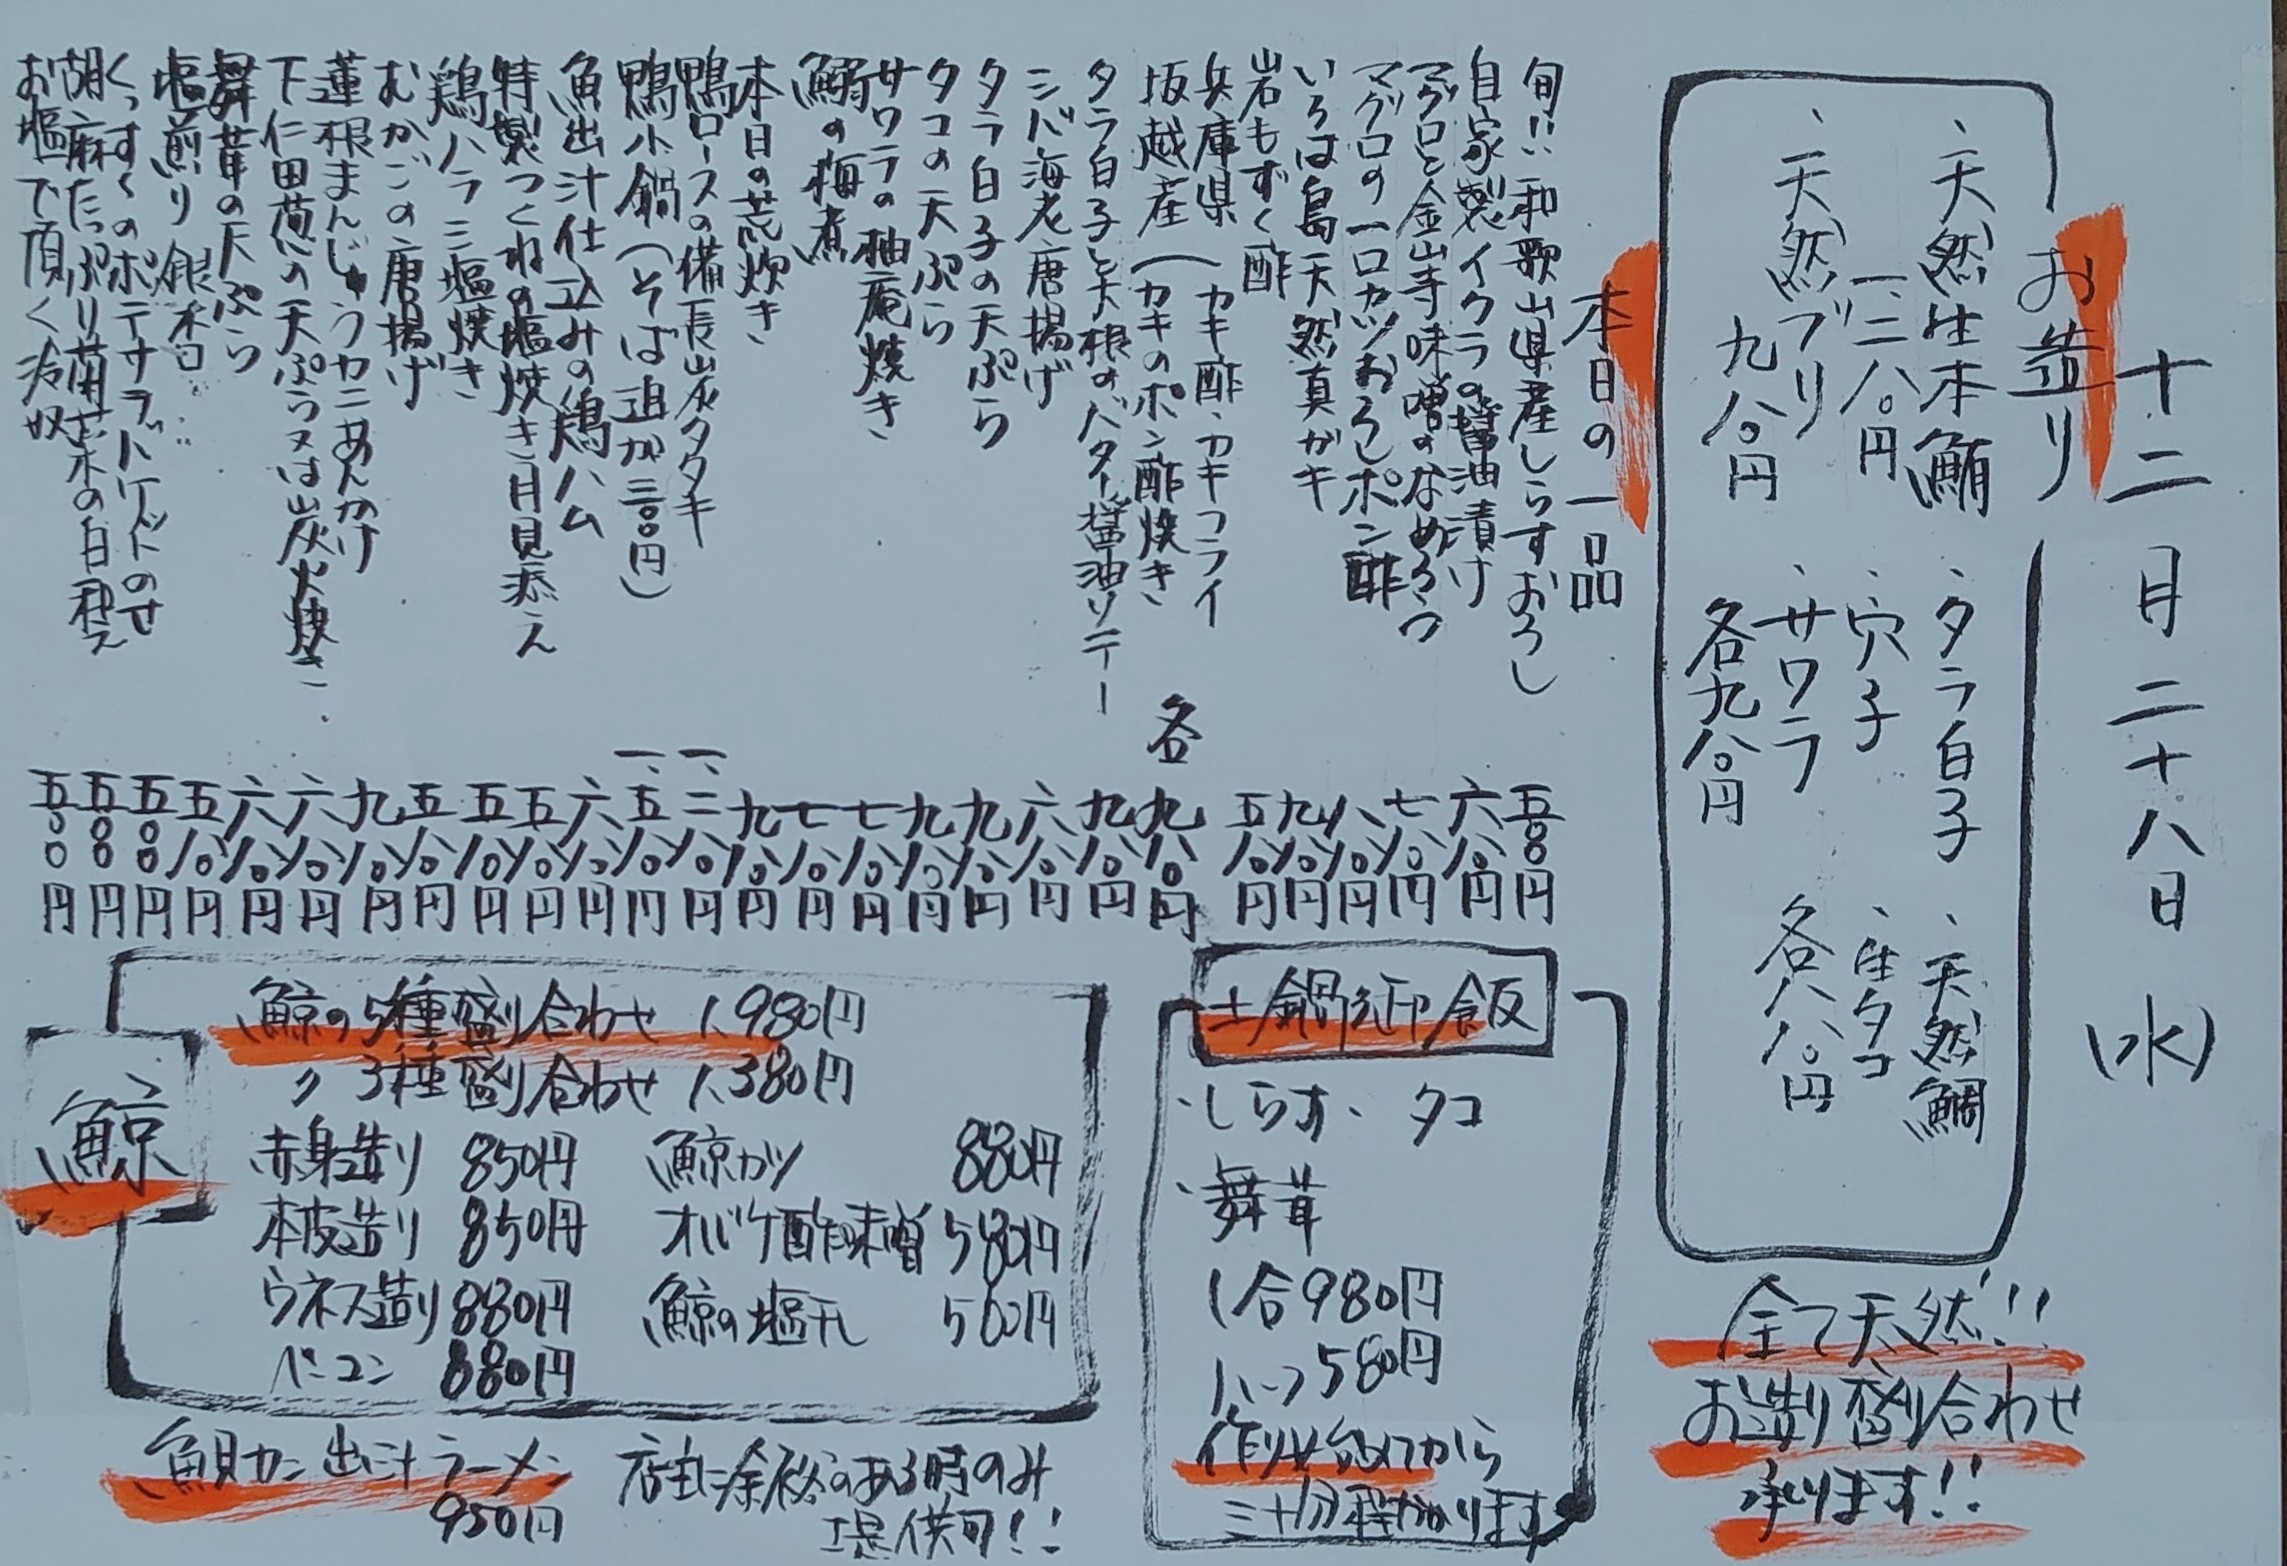 十二月二十八日(水)
お造り
、天然生本鮪
一、二八〇円
、天然ブリ
九八〇円
、タラ白子
、穴子
、サワラ
各九八〇円
、天然鯛
、生タコ
各八八〇円
全て天然!!
お造り盛り合わせ
承ります!!
本日の一品
旬!!和歌山県産しらすおろし 五〇〇円
自家製イクラの醤油漬け 六八〇円
マグロと金山寺味噌のなめろう 七八〇円
マグロの一口カツおろしポン酢 八八〇円
いろは島天然真ガキ 九八〇円
岩もずく酢 五八〇円
兵庫県(カキ酢・カキフライ
坂越産(カキのポン酢焼き 各九八〇円
タラ白子と大根のバター醤油ソテー 九八〇円
シバ海老唐揚げ 六八〇円
タラ白子の天ぷら 九八〇円
タコの天ぷら 九八〇円
サワラの柚庵焼き 七八〇円
鰯の梅煮 七八〇円
本日の荒炊き 九八〇円
鴨ロースの備長炭タタキ 一、二八〇円
鴨小鍋(そば追加三〇〇円) 一、五八〇円
魚出汁仕込みの鶏ハム 六八〇円
特製つくねの塩焼き月見添え 五八〇円
鶏ハラミ塩焼き 五八〇円
むかごの唐揚げ 五八〇円
蓮根まんじゅうカニあんかけ 九八〇円
下仁田葱の天ぷら又は炭火焼き 六八〇円
舞茸の天ぷら 六八〇円
塩煎り銀杏 五八〇円
くっすくのポテサラバケットのせ 五〇〇円
胡麻たっぷり菊菜の白和え 五〇〇円
お塩で頂く冷奴 五〇〇円
土鍋御飯
・しらす、タコ
、舞茸
1合980円
ハーフ580円
作り始めてから
三十分程かかります
鯨
鯨の5種盛り合わせ 1,980円
〃 3種盛り合わせ 1,380円
赤身造り 850円 鯨カツ 880円
本皮造り 850円 オバケ酢味噌 580円
ウネス造り 880円 鯨の塩干し 500円
ベーコン 880円
魚貝カニ出汁ラーメン
950円
店主に余裕のある時のみ
提供可!!